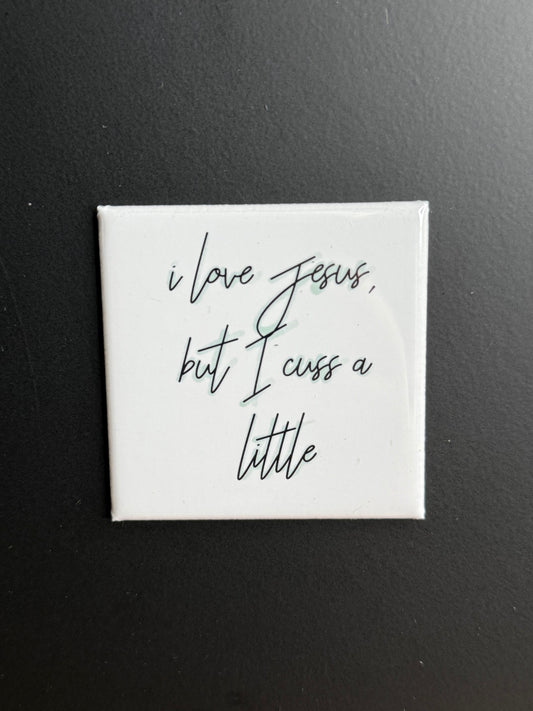 i love Jesus,
but I cuss a
little